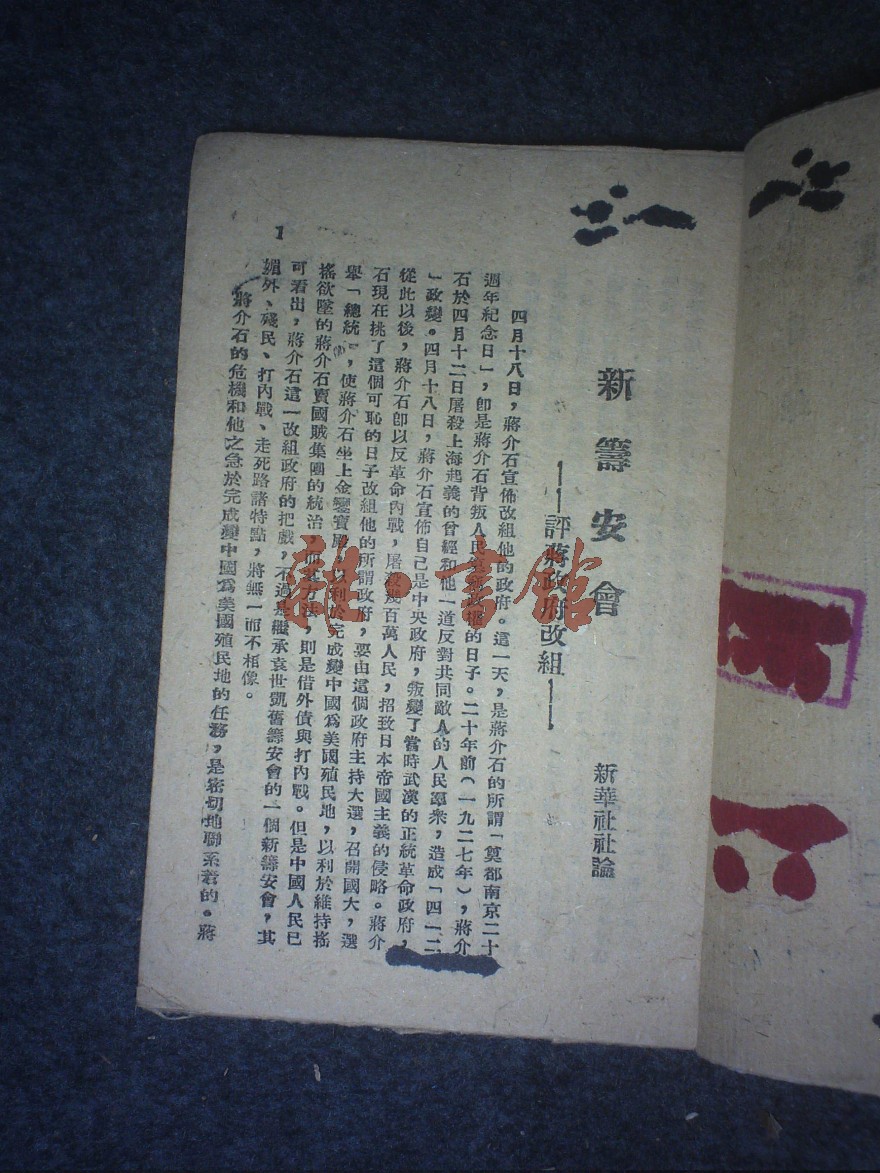 新籌安會
——評蔣政府改組——
新華社社論
四月十八日，蔣介石宣佈改組他的政府。這一天，是蔣介石的所謂「奠都南京二十
週年紀念日」，卽是蔣介石背叛人民篡奪政權的日子。二十年前（一九二七年），蔣介
石於四月十二日屠殺上海起義的曾經和他一道反對共同敵人的人民羣衆，造成「四一二
」政變。四月十八日，蔣介石宣佈自己是中央政府，叛變了當時武漢的正統革命政府，
從此以後，蔣介石卽以反革命內戰，屠殺幾百萬人民，招致日本帝國主義的侵略。蔣介
石現在挑了這個可恥的日子改組他的所謂政府，要由這個政府主持大選，召開國大，選
舉「總統」，使蔣介石坐上金鑾寶殿，以利於完成變中國爲美國殖民地，以利於維持搖
搖欲墜的蔣介石賣國賊集團的統治，而其方法，則是借外債與打內戰。但是中國人民已
可看出，蔣介石這一改組政府的把戲，不過是繼承袁世凱舊籌安會的一個新籌安會，其
媚外、殘民、打內戰、走死路諸特點，將無一而不相像。
蔣介石的危機和他之急於完成變中國爲美國殖民地的任務，是密切地聯系着的。蔣
1
雜·書館